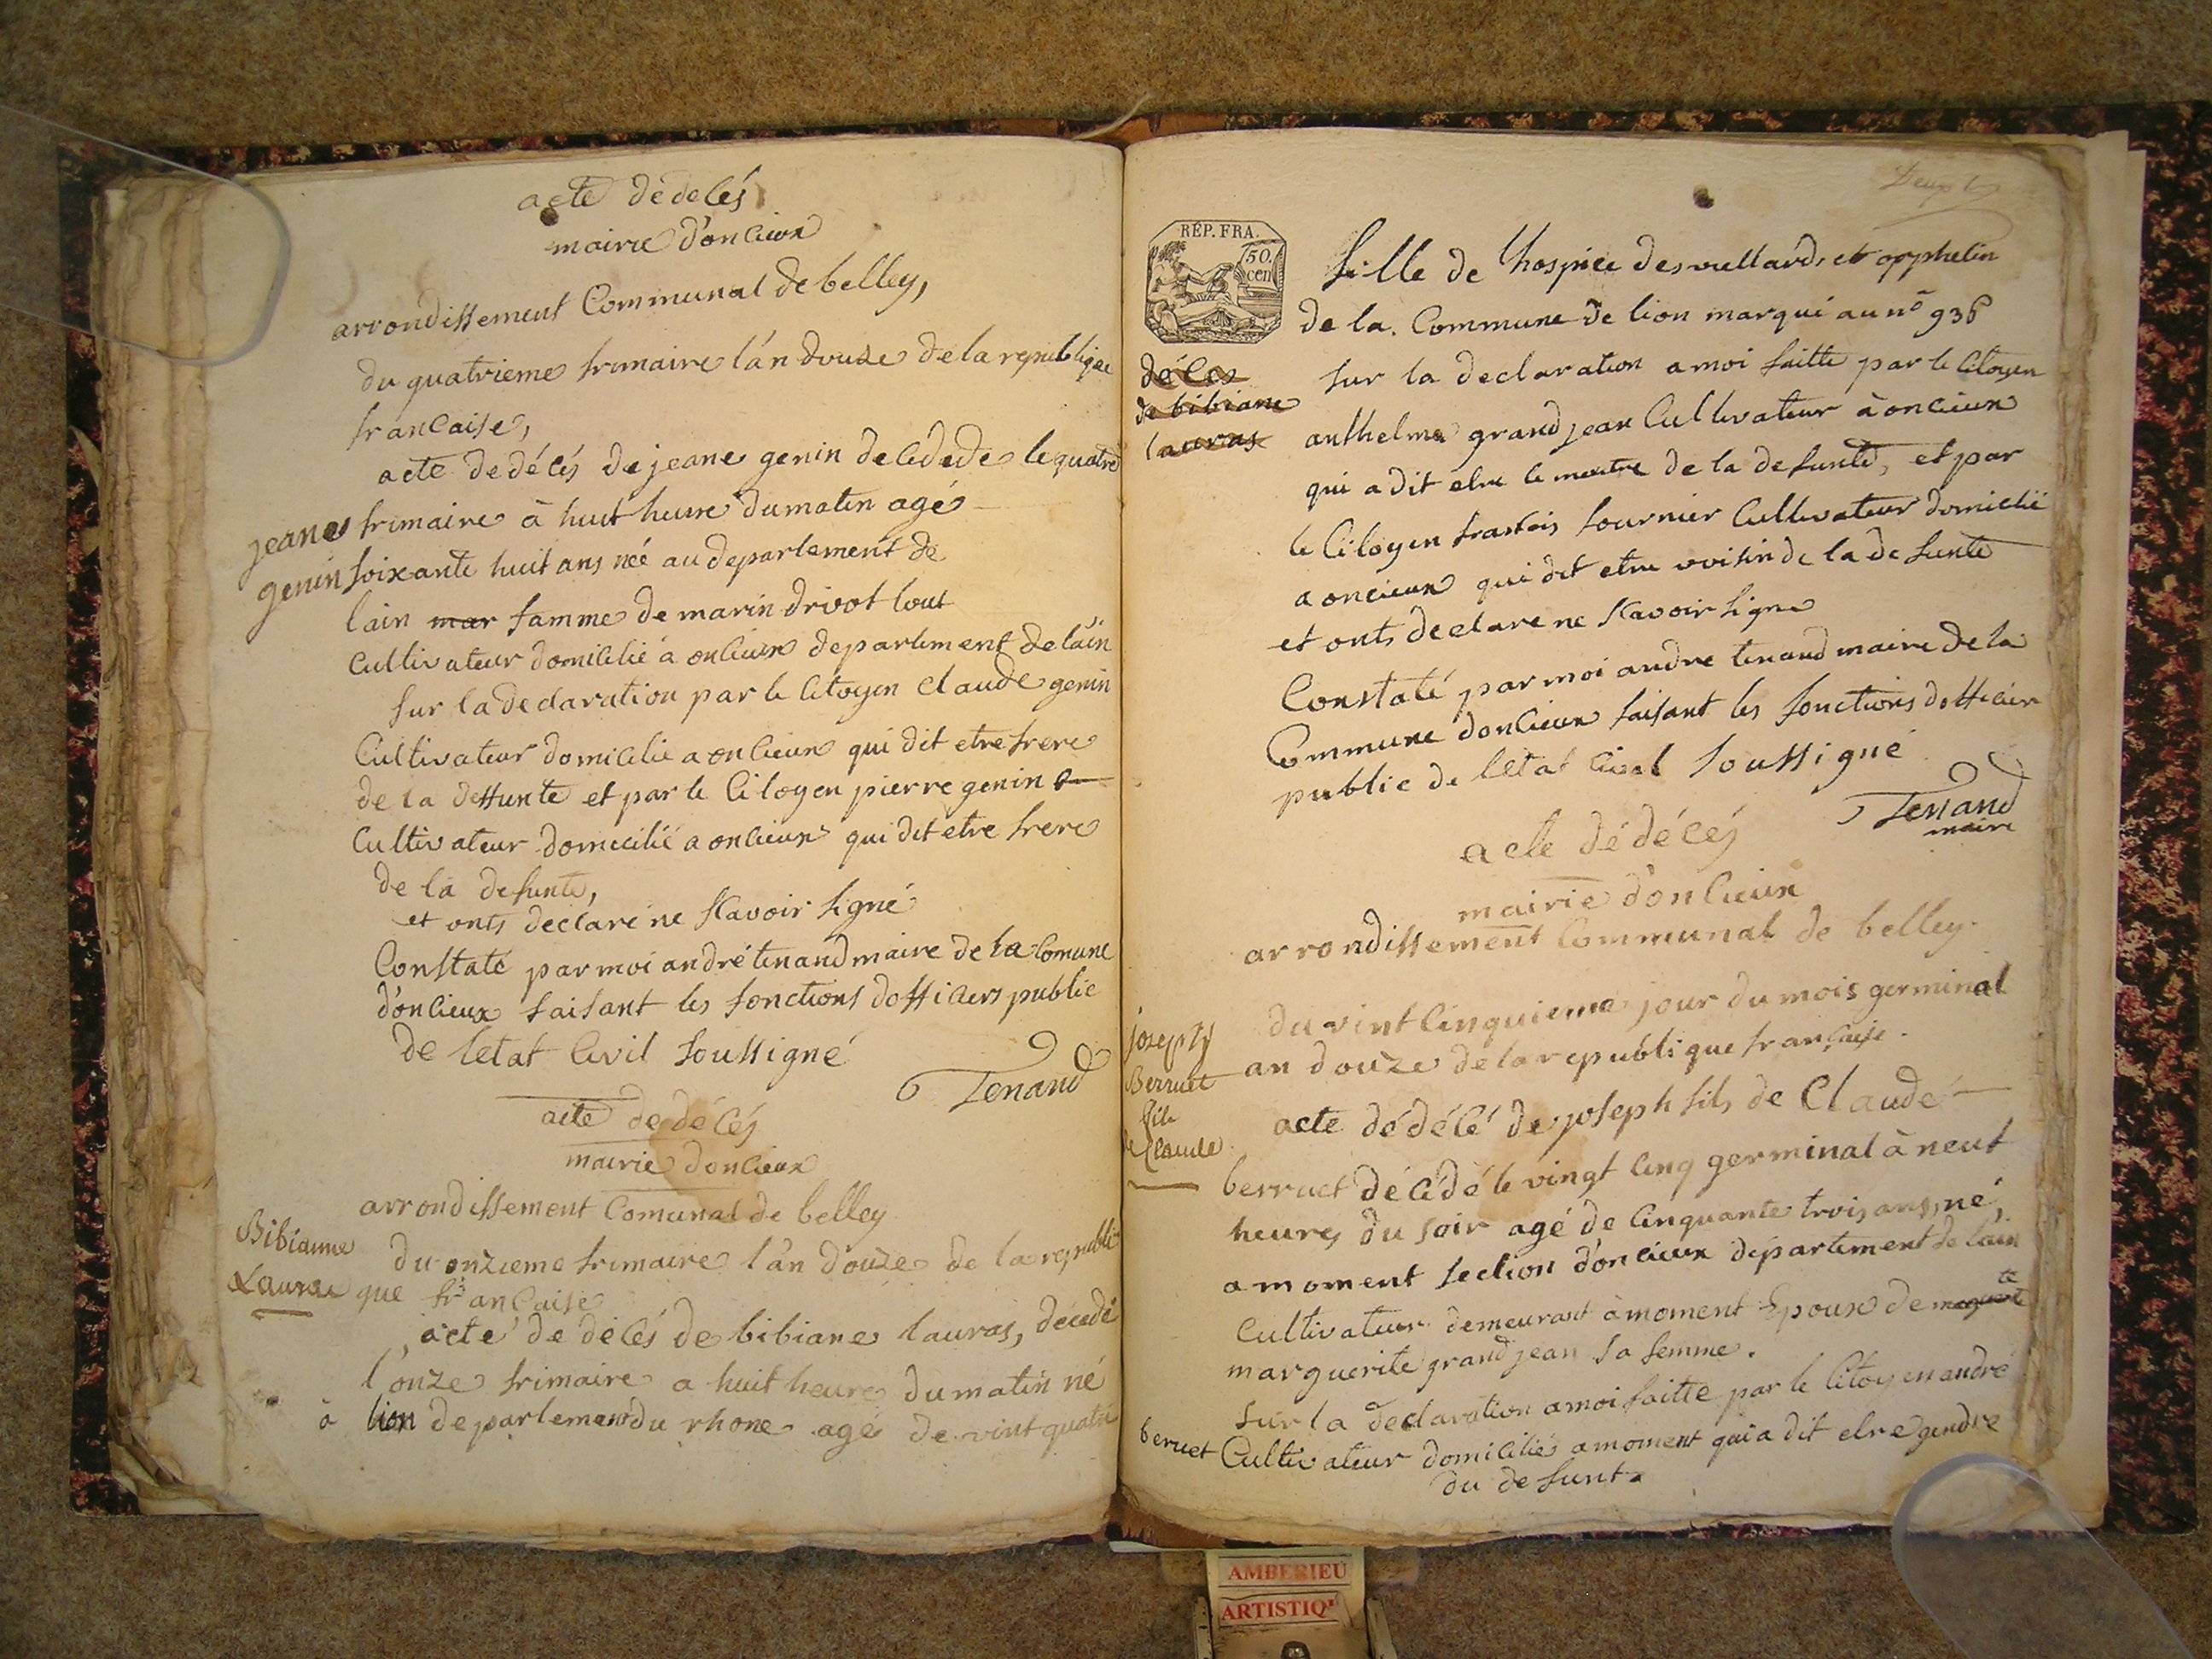 acte dé décés
mairie d'oncieux
arrondissement Communal de belley,
du quatrieme frimaire l'an douze de la republique
francaise,
acte de décés de jeane genin decédede le quatre
jeanes
genin
frimaire à huit heure du matin agé
soixante huit ans née au departement de
lain mar famme de marin drivot tout
cultivateur domicilié à oncieux departement de lain
sur la declaration par le citoyen claude genin
cultivateur domicilié a oncieux qui dit etre frere
de la deffunte et par le citoyen pierre genin
cultivateur domicilié a oncieux qui dit etre frere
de la defunte,
et onts declaré ne scavoir signé
Constaté par moi andré tenand maire de la comune
d'oncieux faisant les fonctions dofficiers public
de letat civil soussigné
Tenand
acte de décés
mairie doncieux
arrondissement Comunal de belley
Bibianne
Laurac
du onzieme frimaire l'an douze de la republi
que francaise
acte de décés de bibiane lauras, décedé
l'onze frimaire a huit heure du matin né
à lion departement du rhone agé de vint quatre
RÉP. FRA.
50.
cen
fille de lhospice des viellards et opphelin
de la Commune de lion marqué au n° 936
décés
de bibiane
lauras
sur la declaration a moi faitte par le citoyen
anthelme grand jean Cultivateur à oncieux
qui a dit etre le maitre de la defunte, et par
le Citoyen francois fournier Cultivateur domicilié
a oncieux qui dit etre voisin de la defunte
et onts declaré ne scavoir signé
Constaté par moi andre tenand maire de la
Commune doncieux faisant les fonctions dofficier
public de letat civil soussigné
Tenand
maire
acte dé décés
mairie d'oncieux
arrondissement Communal de belley.
joseph
Berruet
fils
de Claude
du vint cinquieme jour du mois germinal
an douze de la republique française.
acte dé décé de joseph fils de Claude
berruet décédé le vingt cinq germinal à neuf
heures du soir agé de cinquante trois ans, né,
a moment section d'oncieux département de lain
cultivateur demeurant à moment Epoux de
marguerite grand jean sa femme.
sur la declaration a moi faitte par le citoyen andré
berruet Cultivateur domicilié a moment qui a dit etre gendre
du defunt.
AMBERIEU
ARTISTIQ'